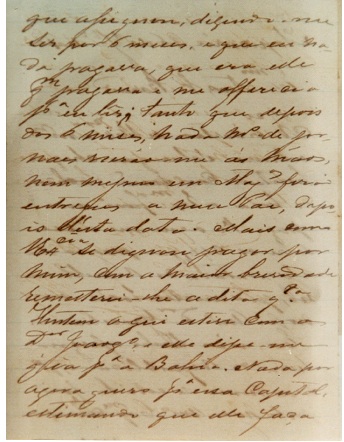 que assignou, dizendo-me
ser por 6 meses, e que eu na
da pagava que era elle
q.m pagava e me offerecia
p.a eu ler; tanto que depois
dos 6 meses, nada m.s de jor
naes vierão me ás mãos,
nem mesmo um foi
entregue a meu Pai, depo
is desta data. Mais como
V.S.cia se dignou pagar por
mim, com a maior brevidade
remetterei-lhe a dita q.tia
Hontem aqui estive com os
D.res e elle disse-me
q ia p.a a Bahia. Nada por
agora quero p.a essa Capital,
estimando que elle faça